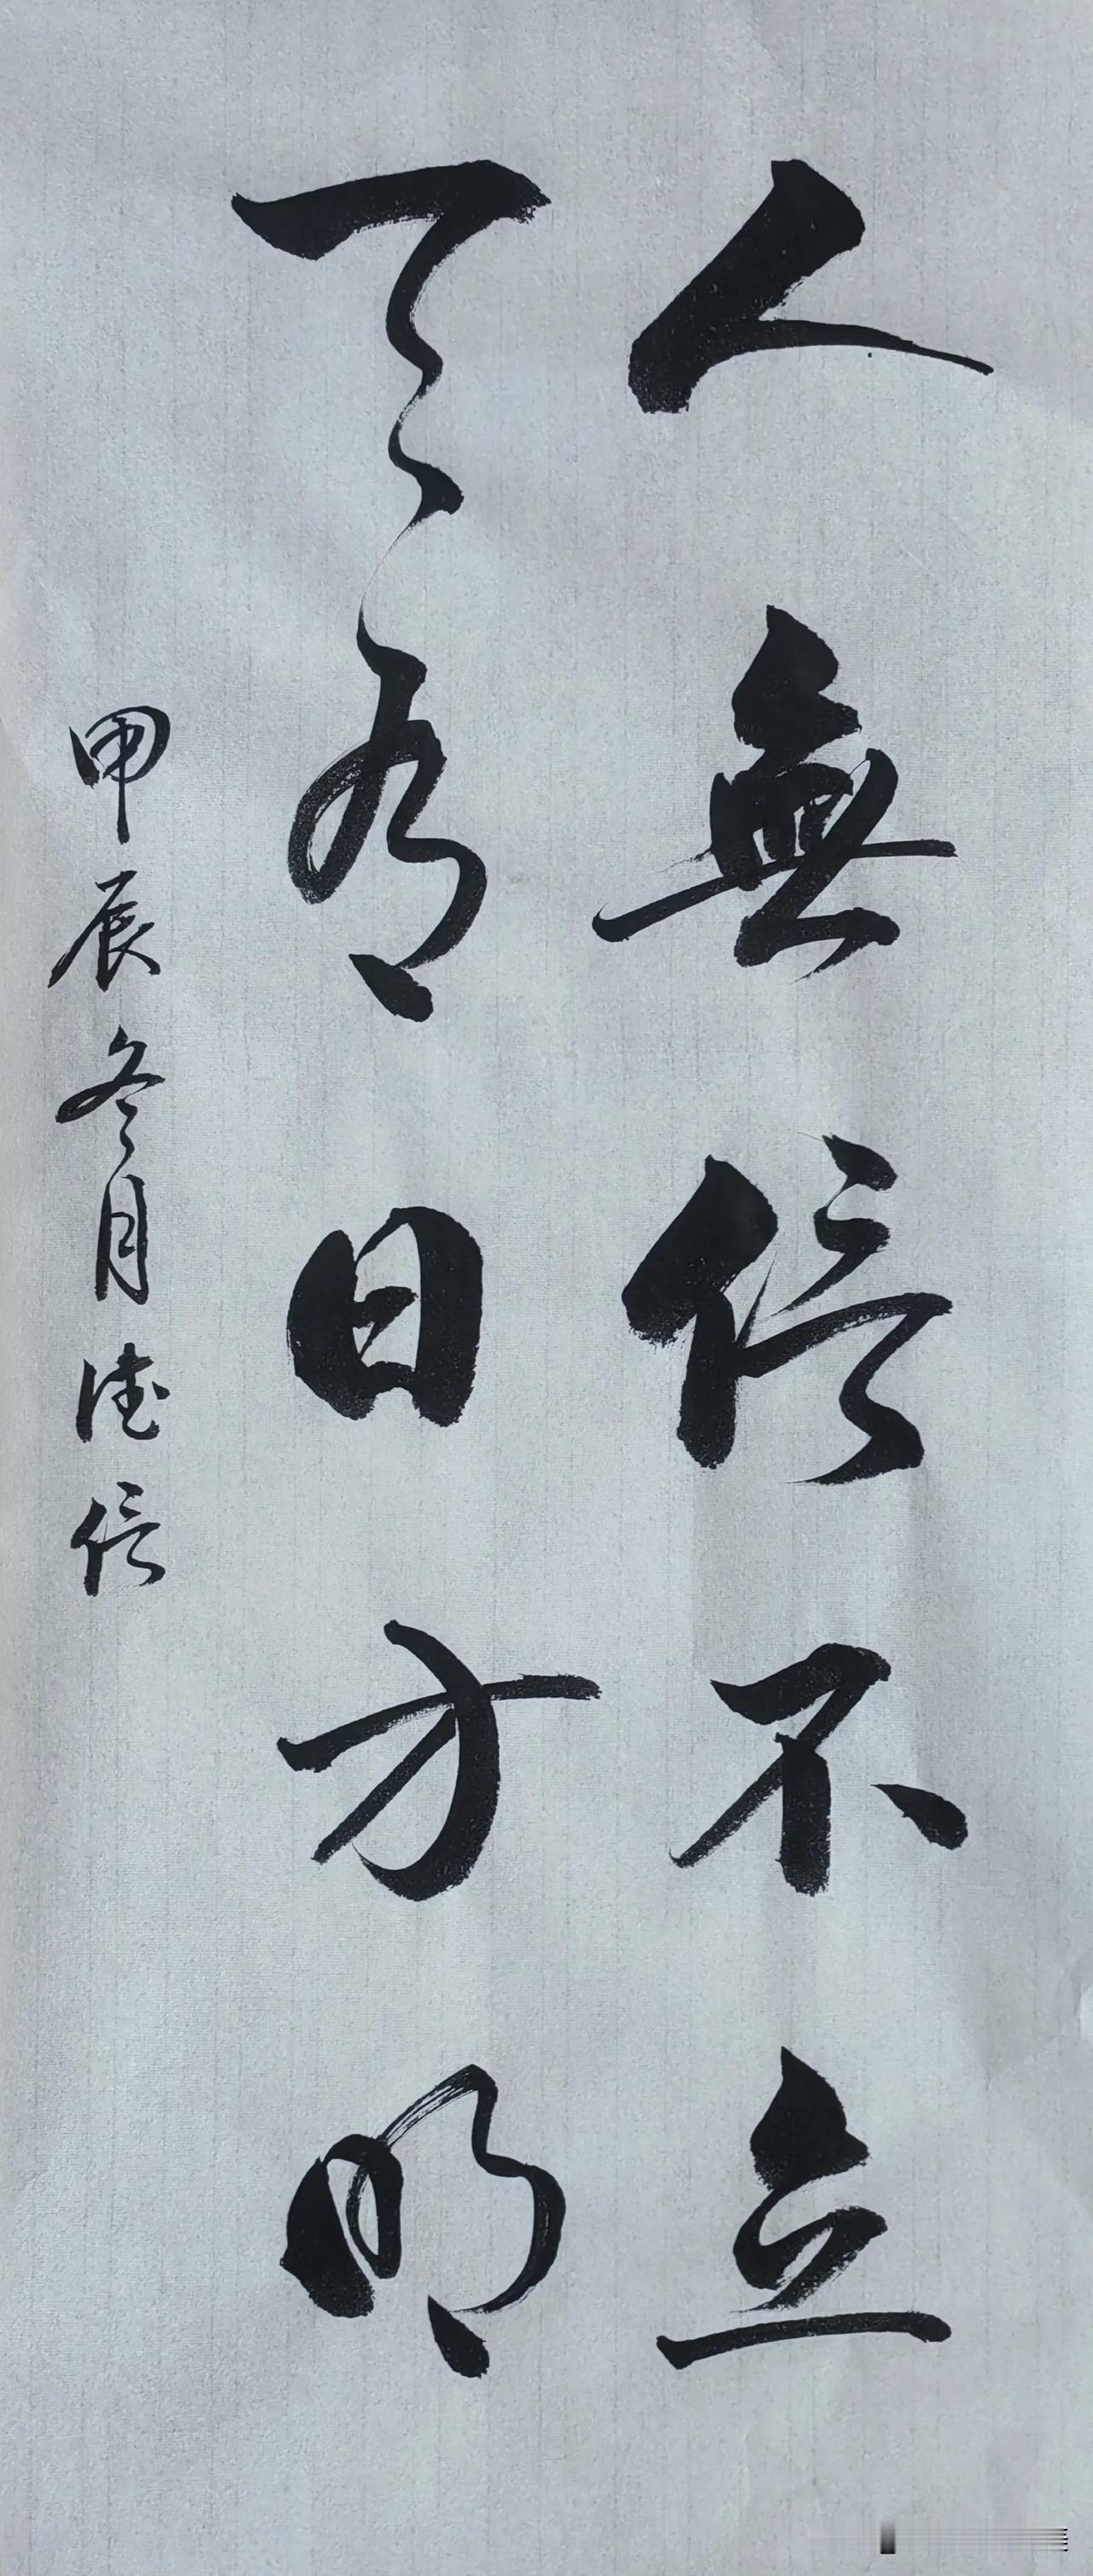 人無信不立
天有日方明
甲辰冬月德信